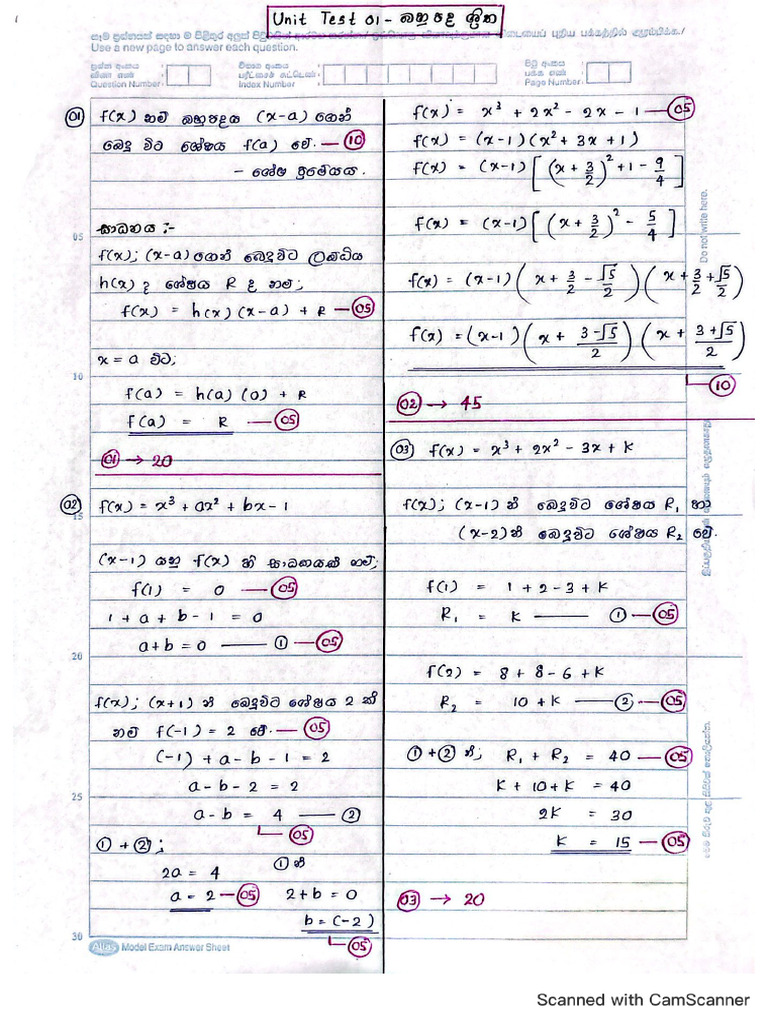 Unit Test 01 - බහුපද ශ්‍රිත
Use a new page to answer each question.
ප්‍රශ්න අංකය
வினா எண்
Question Number
විභාග අංකය
Index Number
පිටු අංකය
பக்க எண்
Page Number
01 f(x) නම් බහුපදය (x-a) ගෙන්
බෙදූ විට ශේෂය f(a) වේ. — 10
- ශේෂ ප්‍රමේයය.
සාධනය :-
05
f(x); (x-a) ගෙන් බෙදූවිට ලබ්ධිය
h(x) ද ශේෂය R ද නම්;
f(x) = h(x) (x-a) + R — 05
x = a විට;
10
f(a) = h(a) (0) + R
f(a) = R — 05
01 → 20
02 f(x) = x³ + ax² + bx - 1
15
(x-1) යනු f(x) හි සාධකයක් නම්;
f(1) = 0 — 05
1 + a + b - 1 = 0
a+b = 0 —— ① — 05
20
f(x); (x+1) න් බෙදූවිට ශේෂය 2 ක්
නම් f(-1) = 2 වේ. — 05
(-1) + a - b - 1 = 2
a - b - 2 = 2
25
a - b = 4 —— ②
05
① + ②;
2a = 4
a = 2 — 05
① න්
2 + b = 0
b = (-2)
05
30
Atlas Model Exam Answer Sheet
f(x) = x³ + 2x² - 2x - 1 — 05
f(x) = (x-1) (x² + 3x + 1)
f(x) = (x-1) [(x + 3/2)² + 1 - 9/4]
f(x) = (x-1) [(x + 3/2)² - 5/4]
f(x) = (x-1) (x + 3/2 - √5/2) (x + 3/2 + √5/2)
f(x) = (x-1) (x + 3-√5/2) (x + 3+√5/2)
10
02 → 45
03 f(x) = x³ + 2x² - 3x + K
f(x); (x-1) න් බෙදූවිට ශේෂය R₁ හා
(x-2) න් බෙදූවිට ශේෂය R₂ වේ.
f(1) = 1 + 2 - 3 + K
R₁ = K —— ① — 05
f(2) = 8 + 8 - 6 + K
R₂ = 10 + K —— ② — 05
① + ② න්; R₁ + R₂ = 40 — 05
K + 10 + K = 40
2K = 30
K = 15 — 05
03 → 20
Do not write here.
Scanned with CamScanner